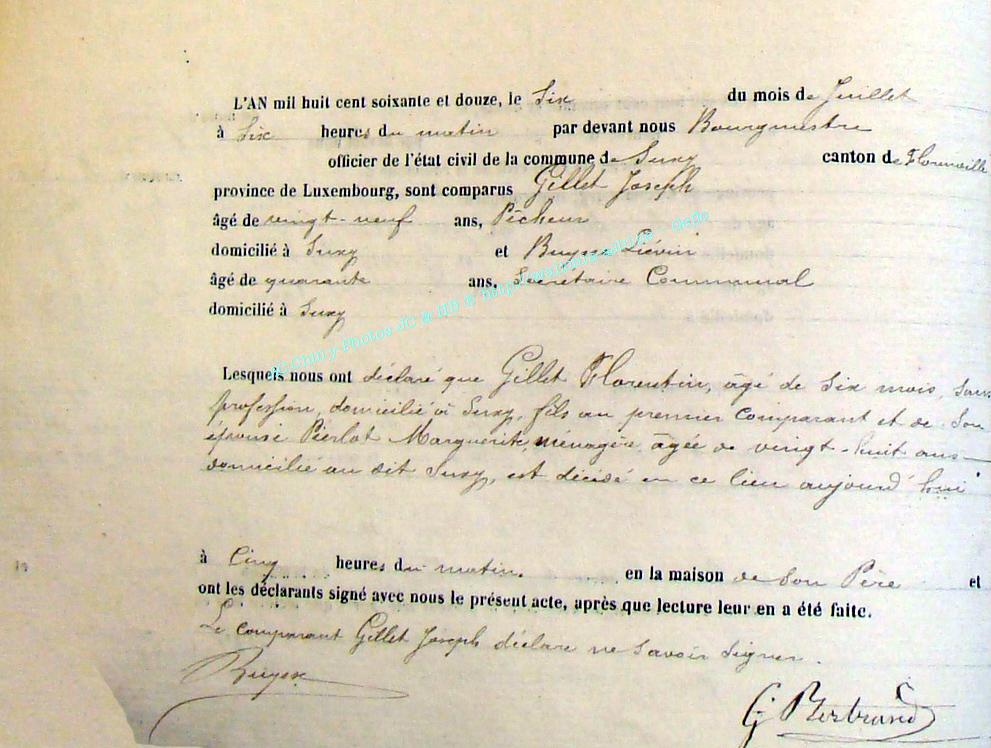 L'AN mil huit cent soixante et douze, le Six du mois de Juillet
à Six heures du matin par devant nous Bourgmestre
officier de l'état civil de la commune de Suxy canton de Florenville
province de Luxembourg, sont comparus Gillet Joseph
âgé de vingt-neuf ans, Pêcheur
domicilié à Suxy et Liévin
âgé de quarante ans, Secrétaire Communal
domicilié à Suxy
Lesquels nous ont déclaré que Gillet Florentin, âgé de Six mois, sans
profession, domicilié à Suxy, fils au premier comparant et de Son
épouse Pierlot Marguerite, ménagère, âgée de vingt-huit ans
domicilié au dit Suxy, est décédé en ce lieu aujourd'hui
à Cinq heures du matin. en la maison de Son Père et
ont les déclarants signé avec nous le présent acte, après que lecture leur en a été faite.
Le comparant Gillet Joseph déclare ne Savoir Signer.
G. Bertrand